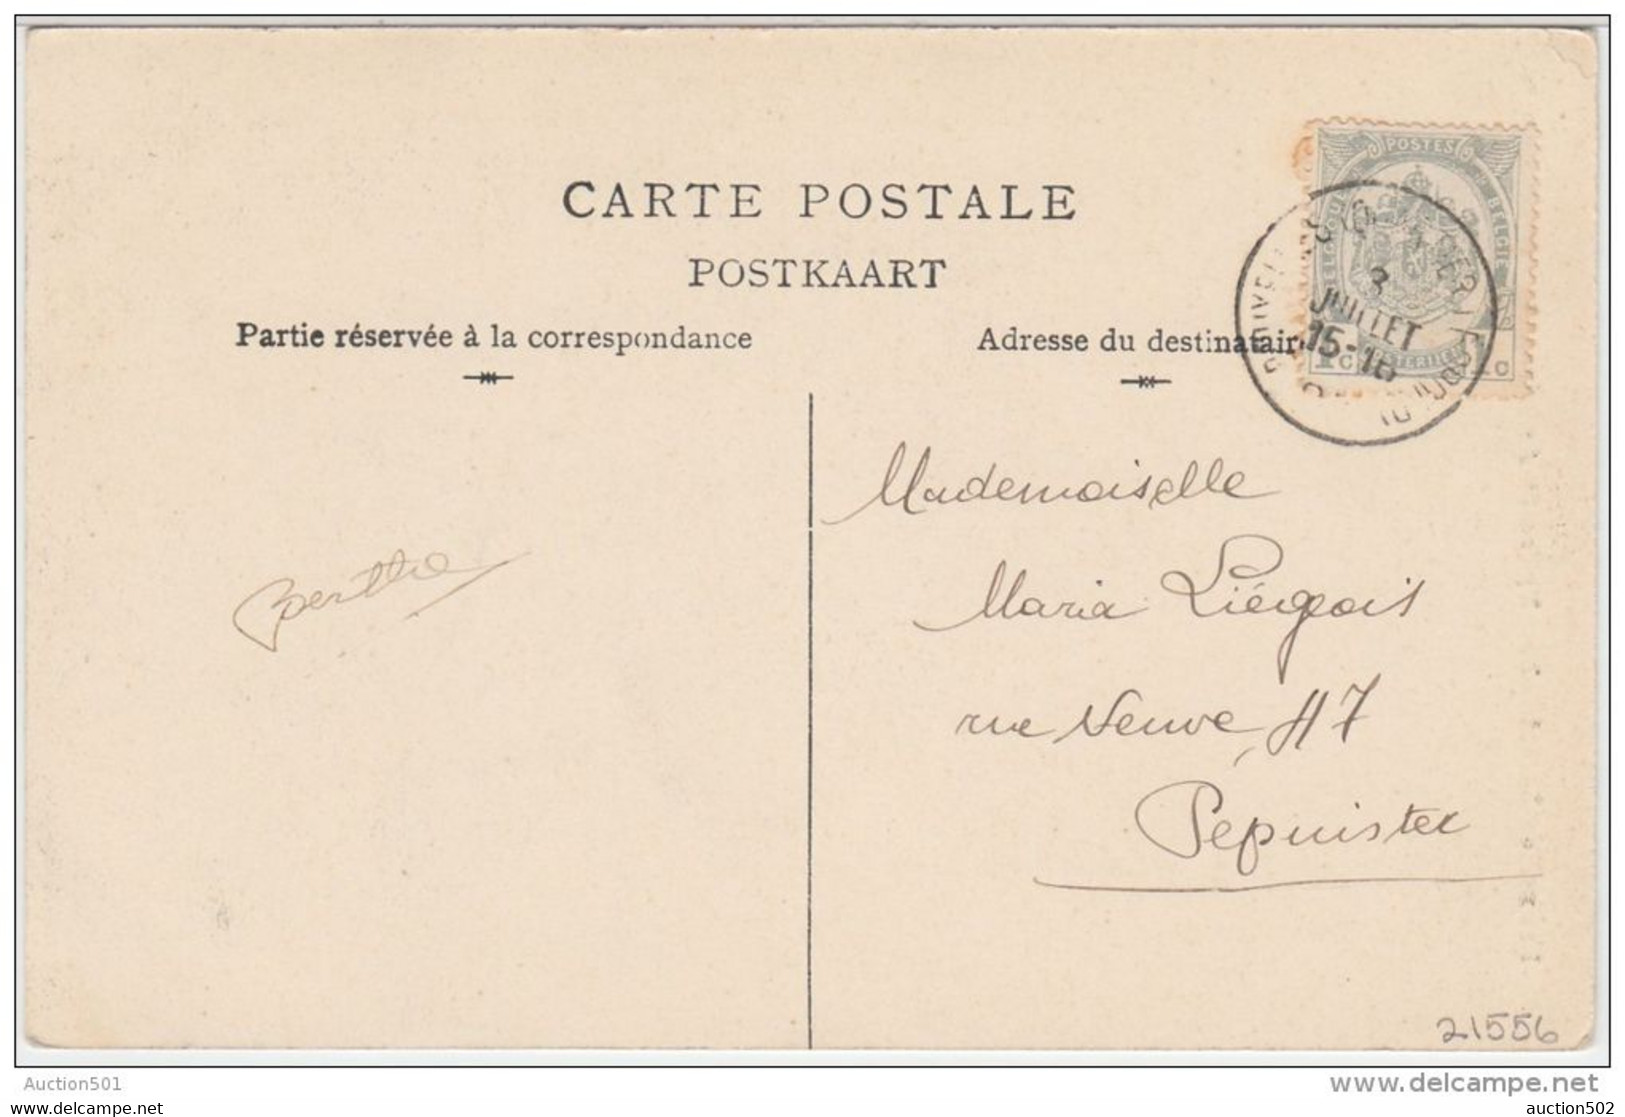 CARTE POSTALE
POSTKAART
Partie réservée à la correspondance
Adresse du destinatair
POSTES
BELGIE
3
JUILLET
15-16
1c
1c
Mademoiselle
Maria Liégeois
rue Neuve 117
Pepinster
Berthe
21556
Auction501
www.delcampe.net
auction501
auction502